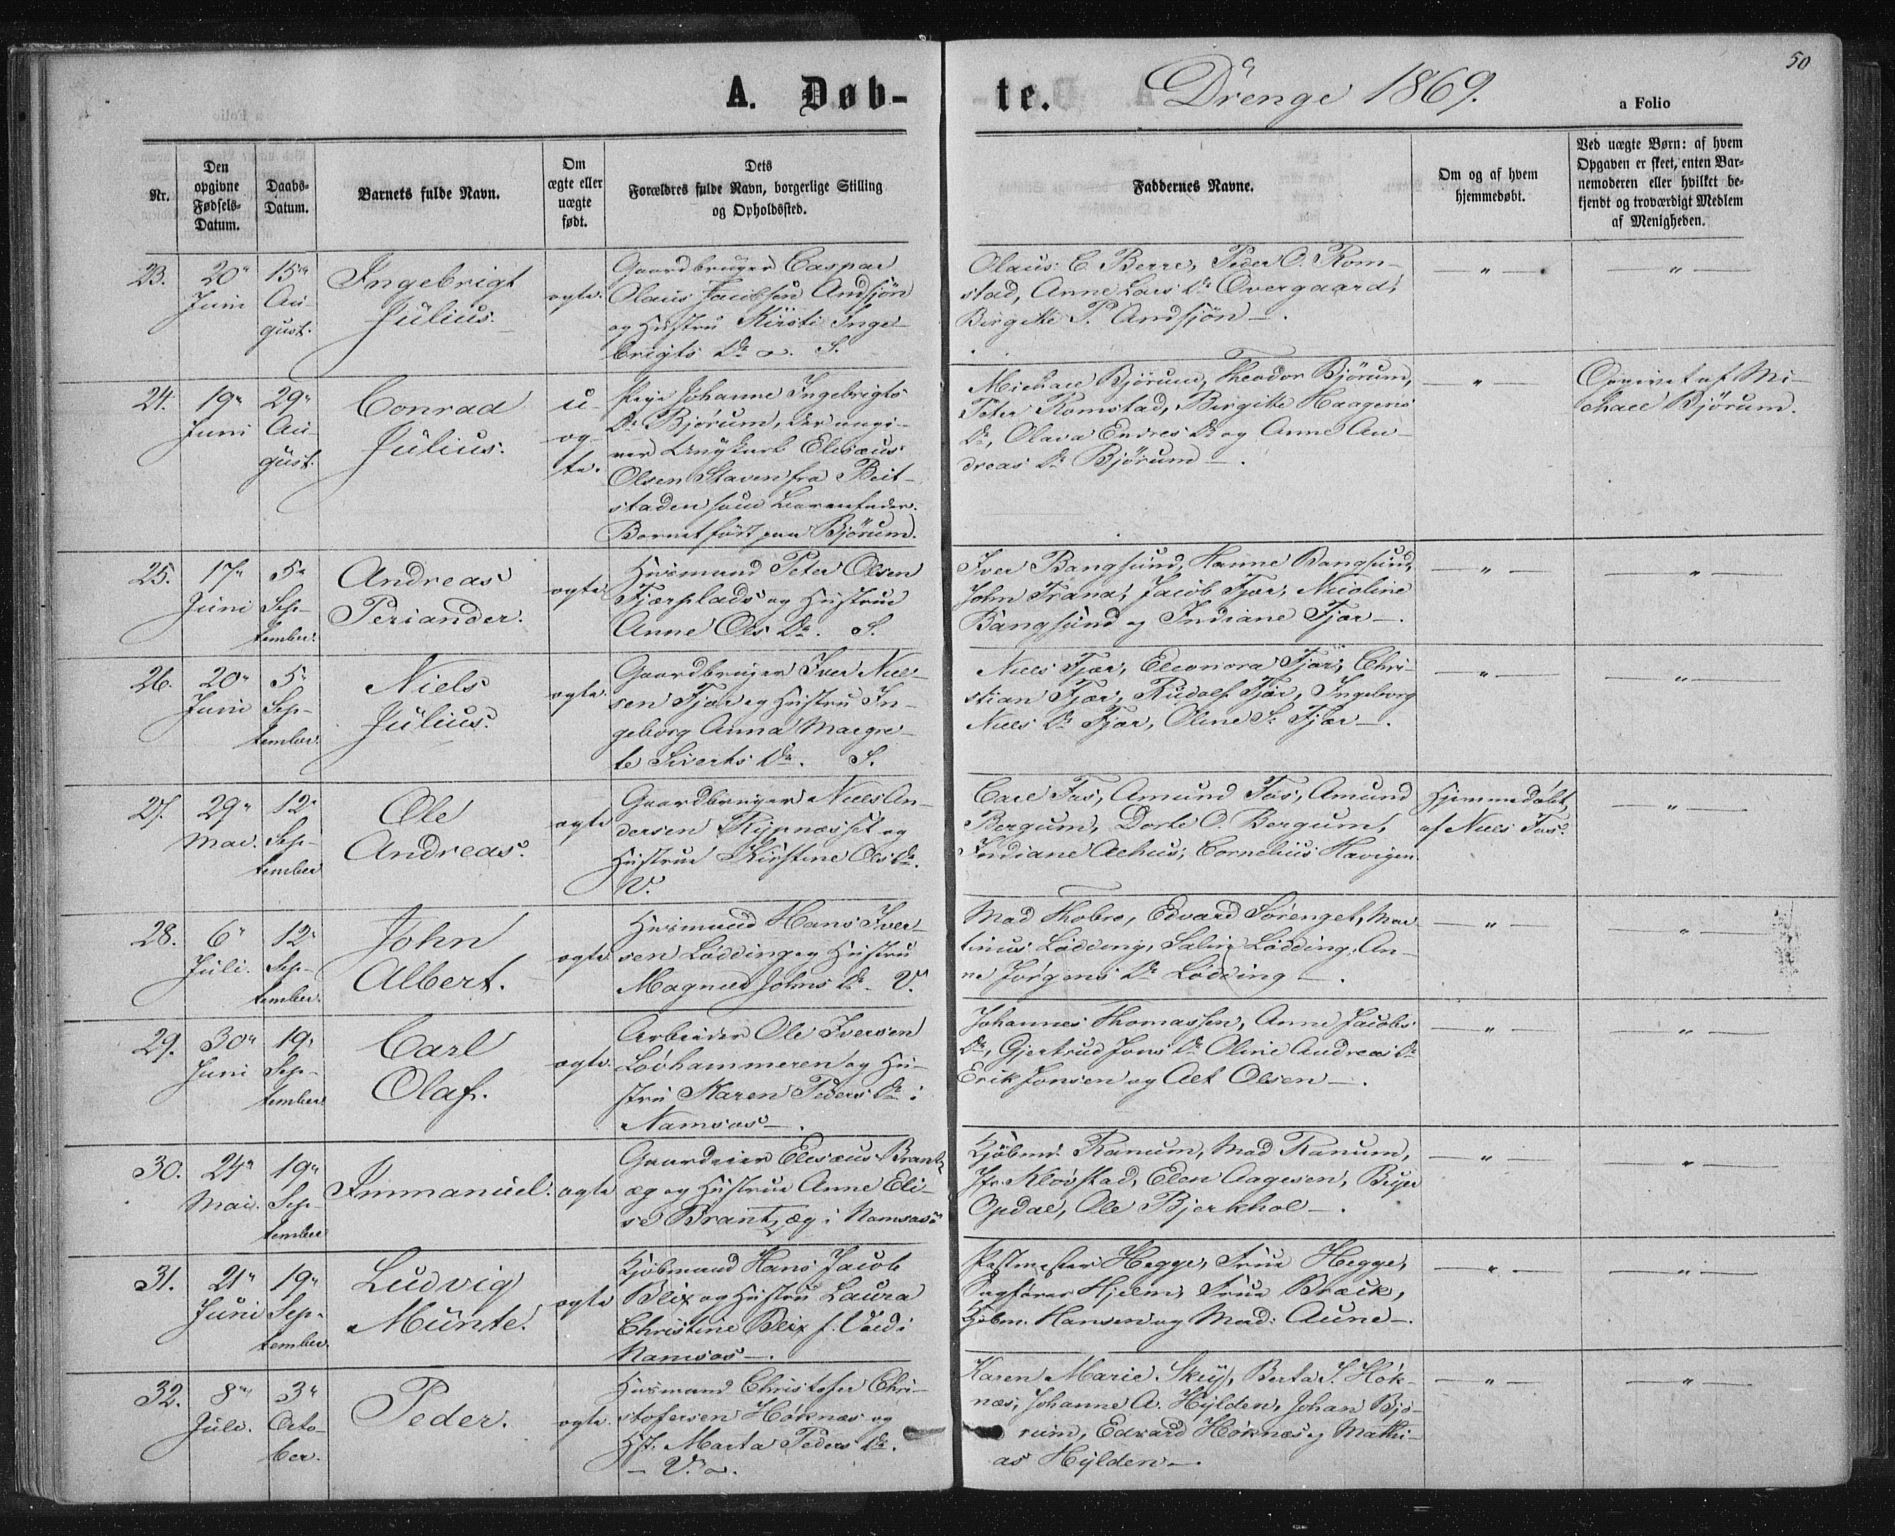 50
A. Døb-
te. Drenge 1869.
a Folio
Nr.
Den opgivne Fødsels-Datum.
Daabs-Datum.
Barnets fulde Navn.
Om ægte eller uægte født.
Dets Forældres fulde Navn, borgerlige Stilling og Opholdssted.
Faddernes Navne.
Om og af hvem hjemmedøbt.
Ved uægte Børn: af hvem Opgaven er skeet, enten Barnemoderen eller hvilket bekjendt og troværdigt Medlem af Menigheden.
23. 20" Juni 15" August.
Ingebrigt Julius.
ægte.
Gaardbruger Caspar
Olaus Jacobsen Andsjön
og Hustru Kirsti Inge-
brigts Dr S.
Olaus C. Berre, Peder O. Rom-
stad, Anne Lars Dr Overgaard,
Birgitte P. Andsjön.
24. 19" Juni 29" August.
Conrad Julius.
uægte.
Pige Johanne Ingebrigts
Dr Bjørum, der angi-
ver Elisæus
Olsen Staven fra Beit-
staden som Barnefader.
Barnet født paa Bjørum.
Michael Bjørum, Theodor Bjørum,
Peter Romstad, Birgitte Haagens
Dr, Olava Endres Dr og Anne An-
dreas Dr Bjørum.
Opgivet af Mi-
chael Bjørum.
25. 17" Juni 5" September.
Andreas Periander.
ægte
Husmand Peter Olsen
Fjærplads og Hustrue
Anne Ols Dr. S.
Iver Bangsund, Hanne Bangsund,
John Trana, Jacob Fjær, Nicoline
Bangsund og Indiane Fjær.
26. 20" Juni 5" September.
Niels Julius.
ægte.
Gaardbruger Iver Niel-
sen Fjær og Hustru In-
geborg Anna Margre-
te Siverts Dr. S.
Niels Fjær, Eleonora Fjær, Chri-
stian Fjær, Rudolf Fjær, Ingeborg
Niels Dr Fjær, Oline S. Fjær.
27. 29" Mai. 12" September
Ole Andreas.
ægte
Gaardbruger Niels An-
dersen Rypnæsset og
Hustrue Kirstine Ols Dr.
V.
Carl Fas, Amund Fas, Amund
Bergum, Dorte O. Bergum,
Indiane Aehus, Cornelius Havigen.
Hjemmedøbt
af Niels Fas.
28. 6" Juli. 12" September.
John Albert.
ægte
Husmand Hans Iver-
sen Lødding og Hustru
Magnild Johns Dr. V.
Mad Thobro, Edvard Sørenget, Mar-
tinus Lødding, Salina Lødding, An-
ne Jørgens Dr Lødding.
29. 30" Juni 19" September
Carl Olaf.
ægte.
Arbeider Ole Iversen
Løvhammeren og Hu-
stru Karen Peders Dr i
Namsos.
Johannes Thomassen, Anne Jacobs
Dr, Gjertrud Jons Dr Oline Andreas Dr
Erik Jonsen og Alet Olsen.
30. 24" Mai. 19" September
Immanuel.
ægte
Gaardeier Elisæus Brantz-
æg og Hustrue Anne Eli-
se Brantzæg i Namsos.
Kjøbmd. Ranum, Mad Ranum,
Jfr. Kløvstad, Elen Aagesen,
Opdal, Ole Bjerkhol.
31. 21" Juni 19" September.
Ludvig Münte.
ægte
Kjøbmand Hans Jacob
Blix og Hustru Laura
Christine Blix f. i
Namsos.
Postmester Hegge, Frue Hegge,
Sagfører Hjelm, Frue Bræck,
Kjøbm. Hansen og Mad: Aune.
32. 8" Juli. 3" October.
Peder.
ægte.
Husmand Christofer Chri-
stofersen Høknæs og
Hst. Marta Peders Dr.
V.
Karen Marie Skey, Berta S. Høk-
næs, Johanne A. Hylden, Johan Bjø-
rum, Edvard Høknæs og Mathi-
as Hylden.